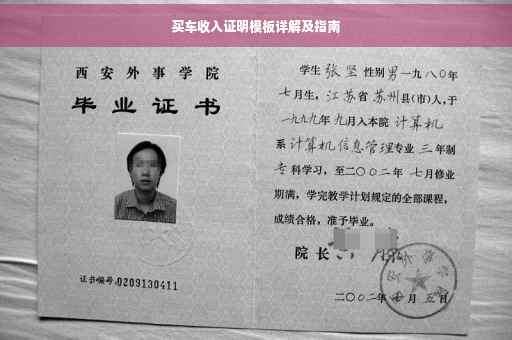 买车收入证明模板详解及指南
西安外事学院
毕业证书
证书编号:0209130411
学生 张坚 性别 男 一九八〇年
七月生, 江苏省 苏州县(市)人,于
一九九九年 九月入本院 计算机
系 计算机信息管理专业 三 年制
专科学习,至二〇〇二年 七月修业
期满,学完教学计划规定的全部课程,
成绩合格,准予毕业。
院长
二〇〇二年 月 五日